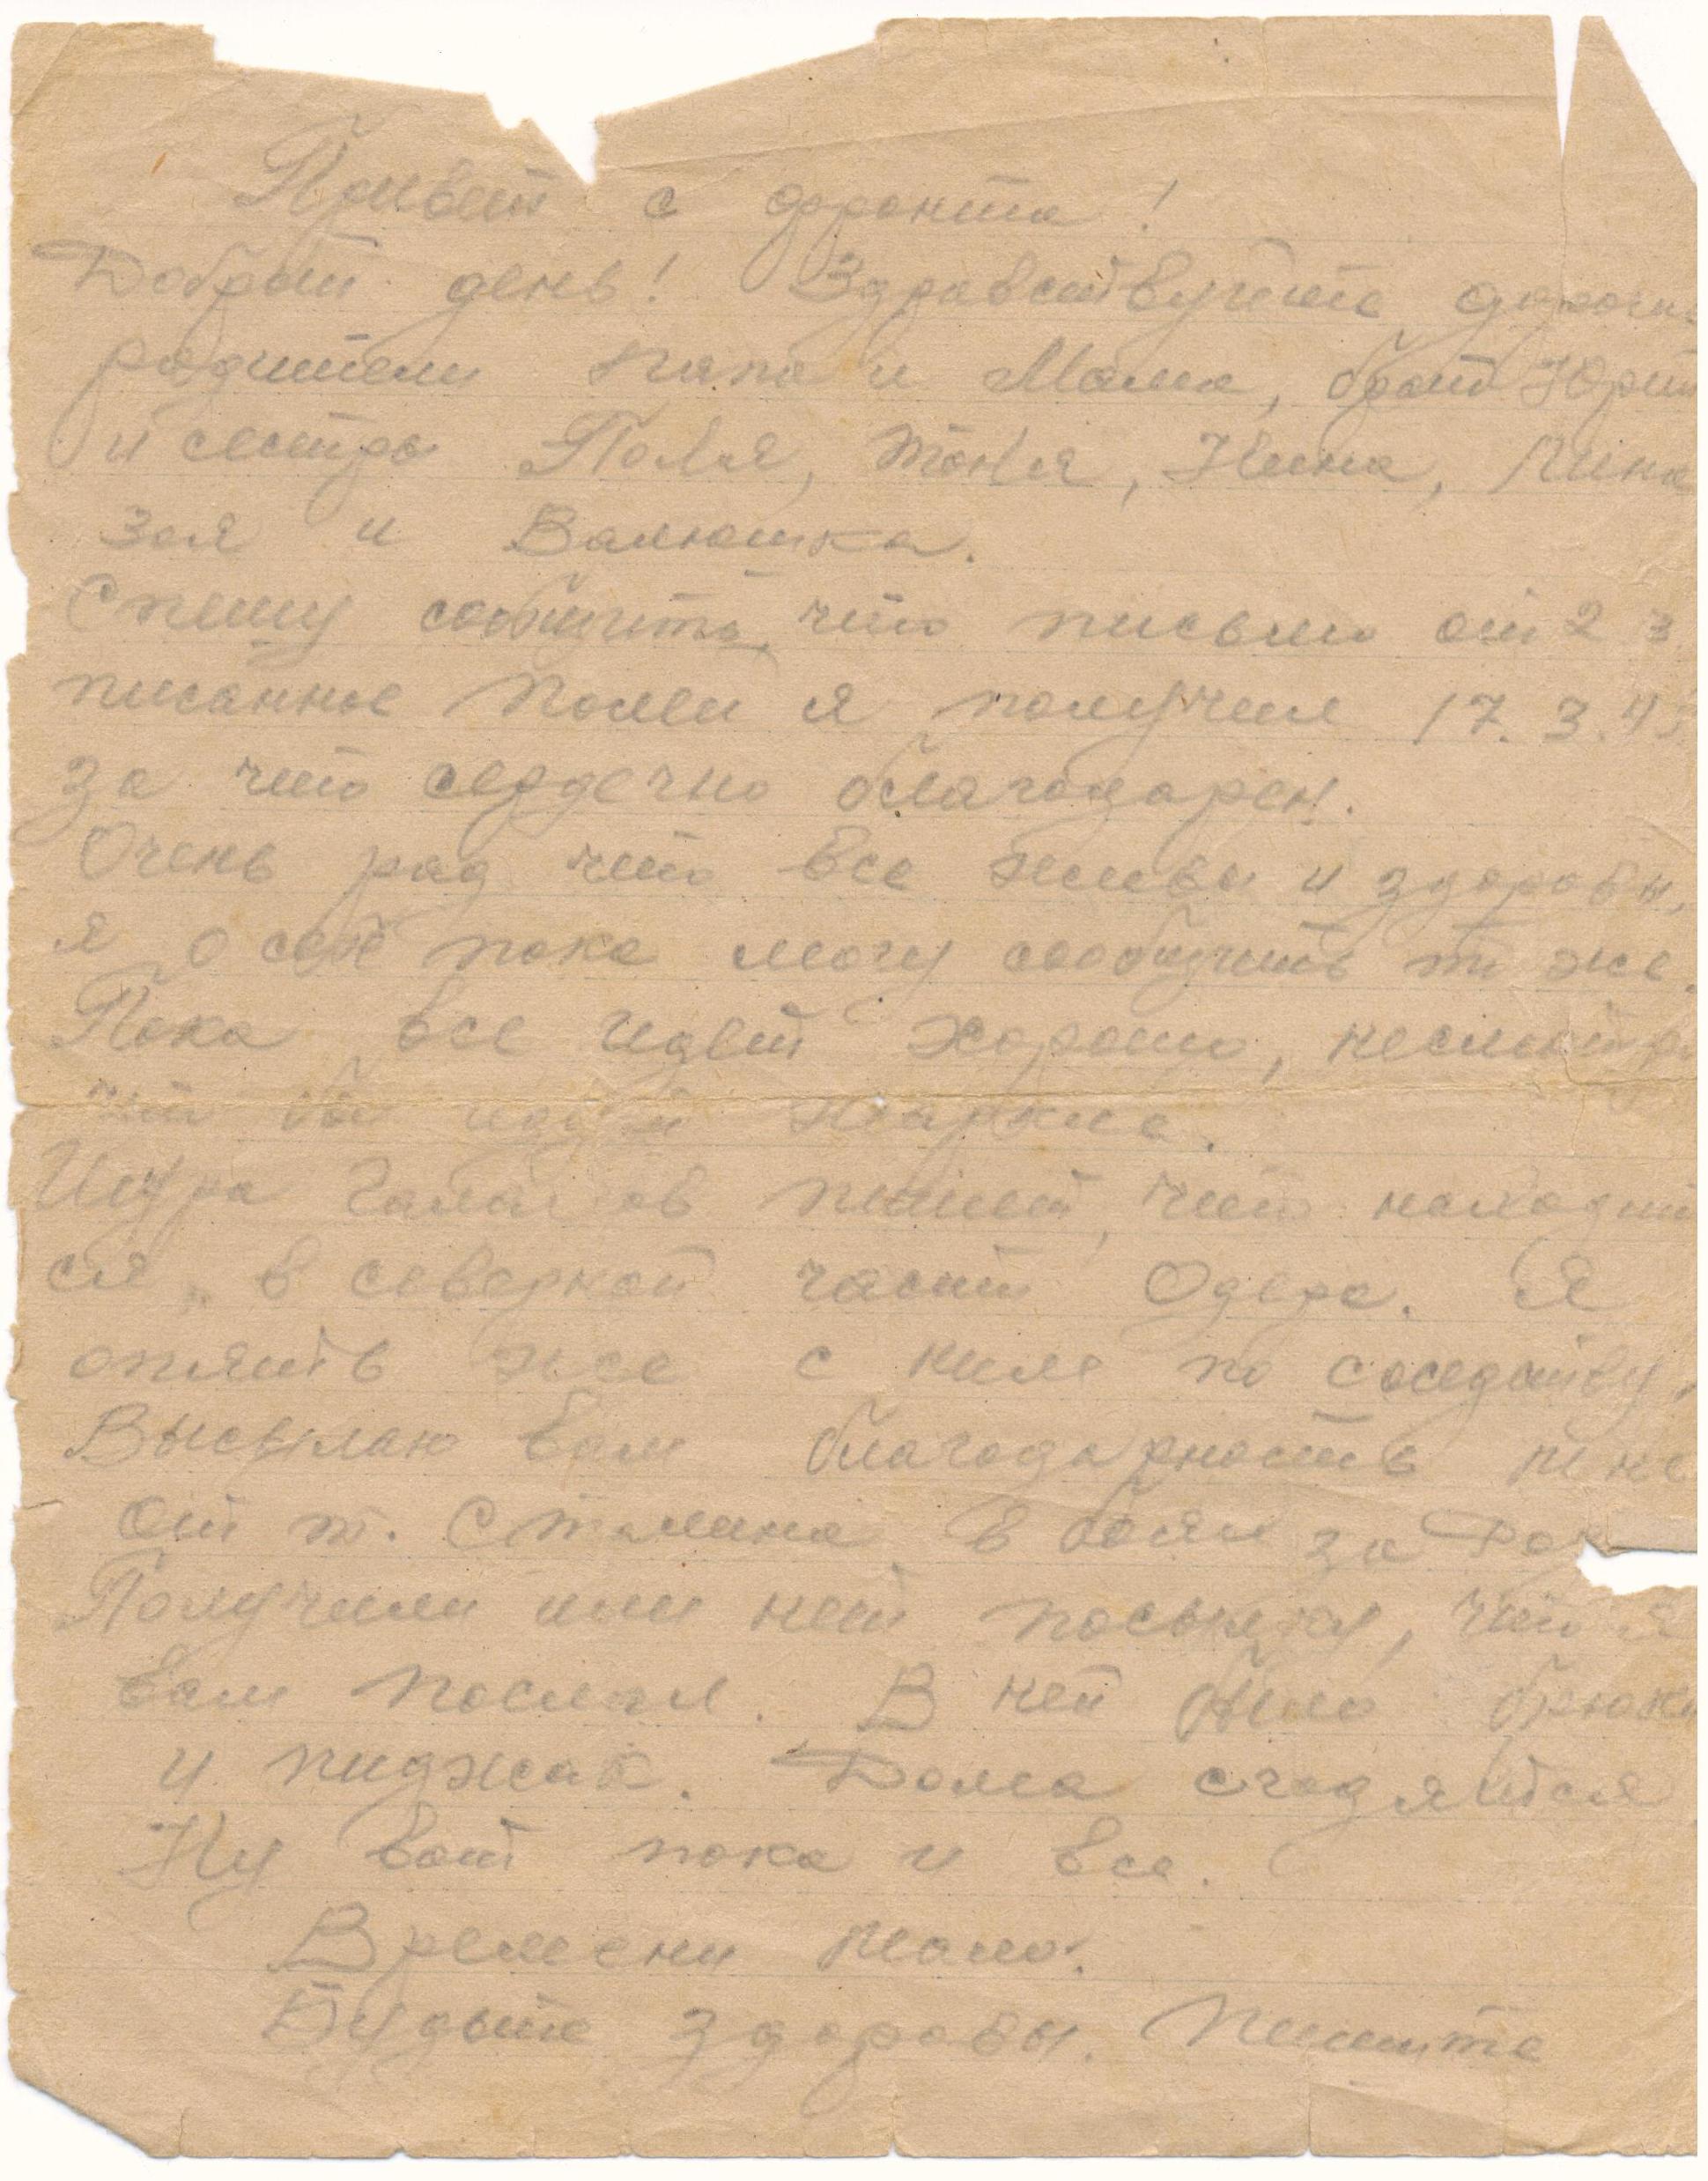 Привет с фронта!
Добрый день! Здравствуйте дороги
родители папа и Мама, брат Юрий
и сестры Поля, Тоня, Нина, Лина
Зоя и Валюшка.
Спешу сообщить, что письмо от 2 3
писанное Полей я получил 17.3.45
за что сердечно благодарен.
Очень рад что все живы и здоровы,
я о себе пока могу сообщить то же.
Пока все идет хорошо, несмотря
что бои идут жаркие.
Шура пишет, что находит
ся, в северной части Одера. Я
опять же с ним по соседству.
Высылаю вам благодарность мне
от т. Сталина в боях за
Получили или нет посылку, что я
вам послал. В ней было брюки
и пиджак. Дома сгодяится
Ну вот пока и все.
Времени мало.
Будьте здоровы. Пишите